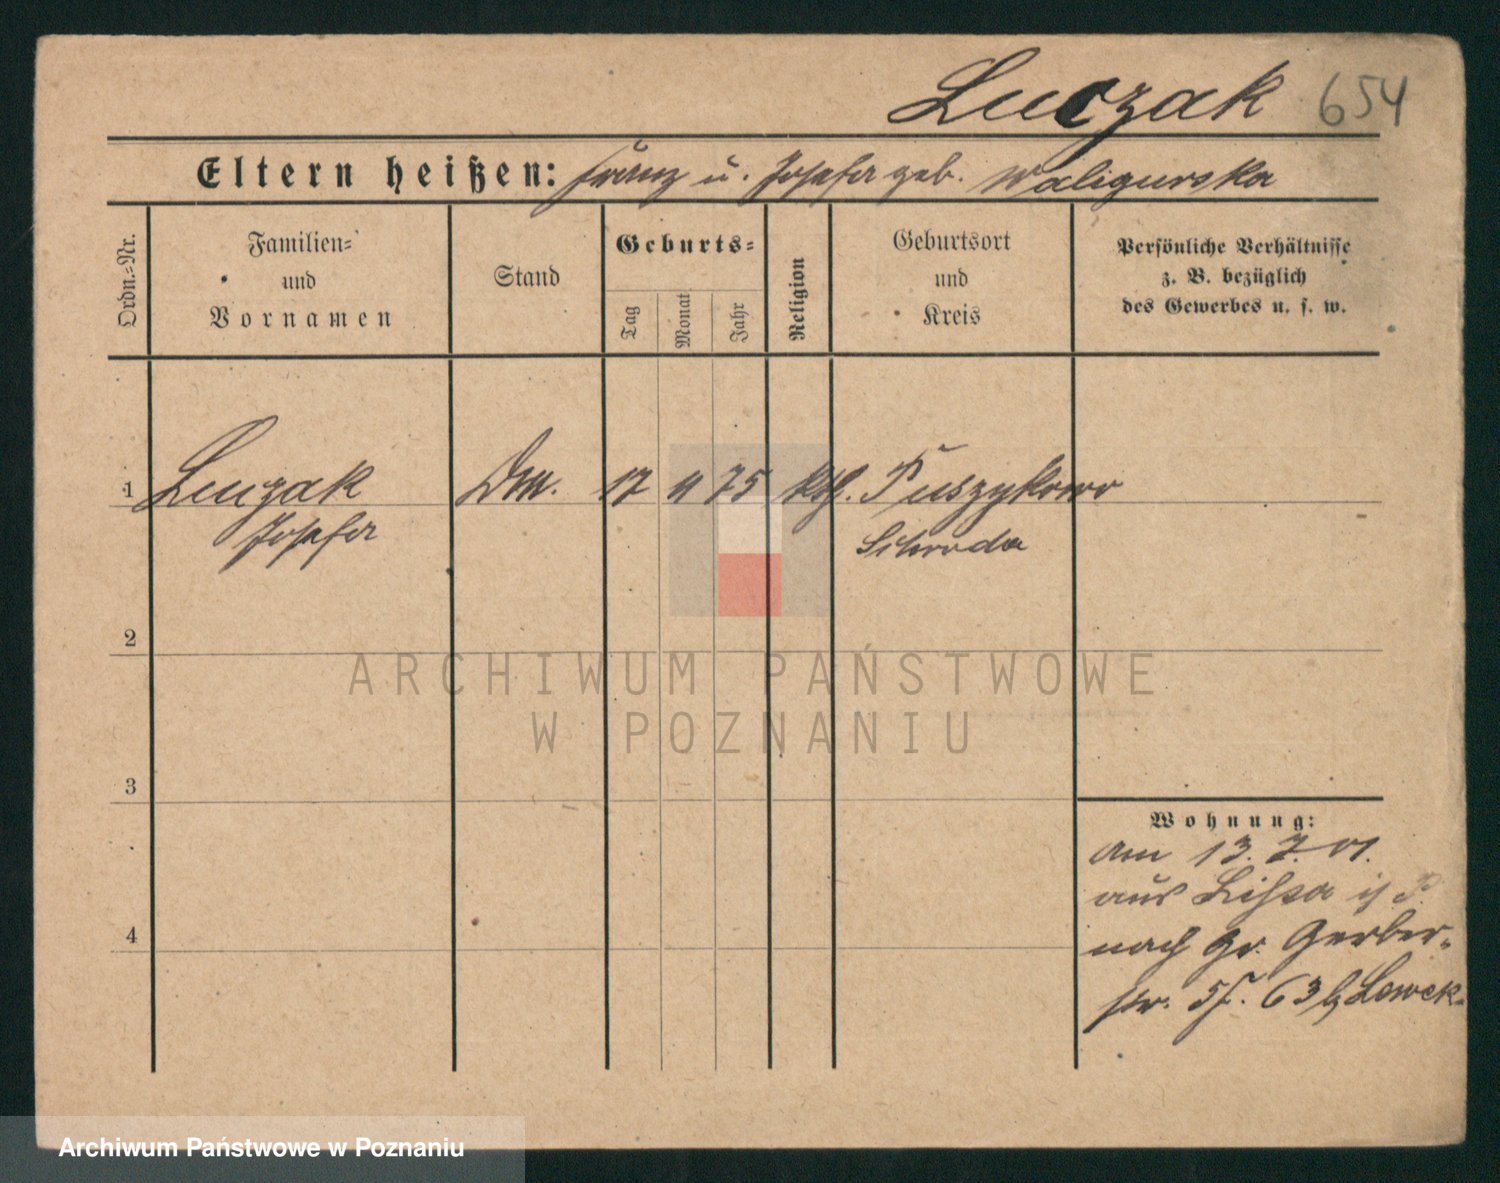 Luczak 654
Eltern heißen: Franz u. Josefa geb. Waligurska
Ordn.-Nr.
Familien-
und
Vornamen
Stand
Geburts-
Tag
Monat
Jahr
Religion
Geburtsort
und
Kreis
Persönliche Verhältnisse
z. B. bezüglich
des Gewerbes u. s. w.
1 Luczak 17 75 kth. Puszykowo
Josefa Schroda
2
ARCHIWUM PAŃSTWOWE
W POZNANIU
3
Wohnung:
am 13. 7. 01.
aus Lissa i/P.
4
nach Gr. Gerber-
str. 63 b Lewek
Archiwum Państwowe w Poznaniu